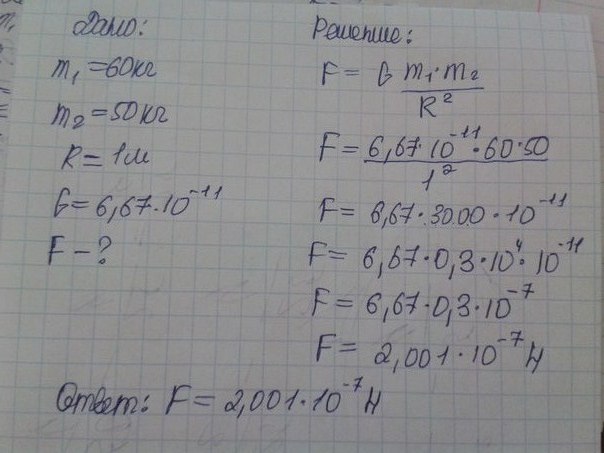 Дано:
m₁ = 60кг
m₂ = 50кг
R = 1м
G = 6,67·10⁻¹¹
F – ?
Решение:
F = G m₁·m₂ / R²
F = 6,67·10⁻¹¹·60·50 / 1²
F = 6,67·3000·10⁻¹¹
F = 6,67·0,3·10⁴·10⁻¹¹
F = 6,67·0,3·10⁻⁷
F = 2,001·10⁻⁷ Н
Ответ: F = 2,001·10⁻⁷ Н